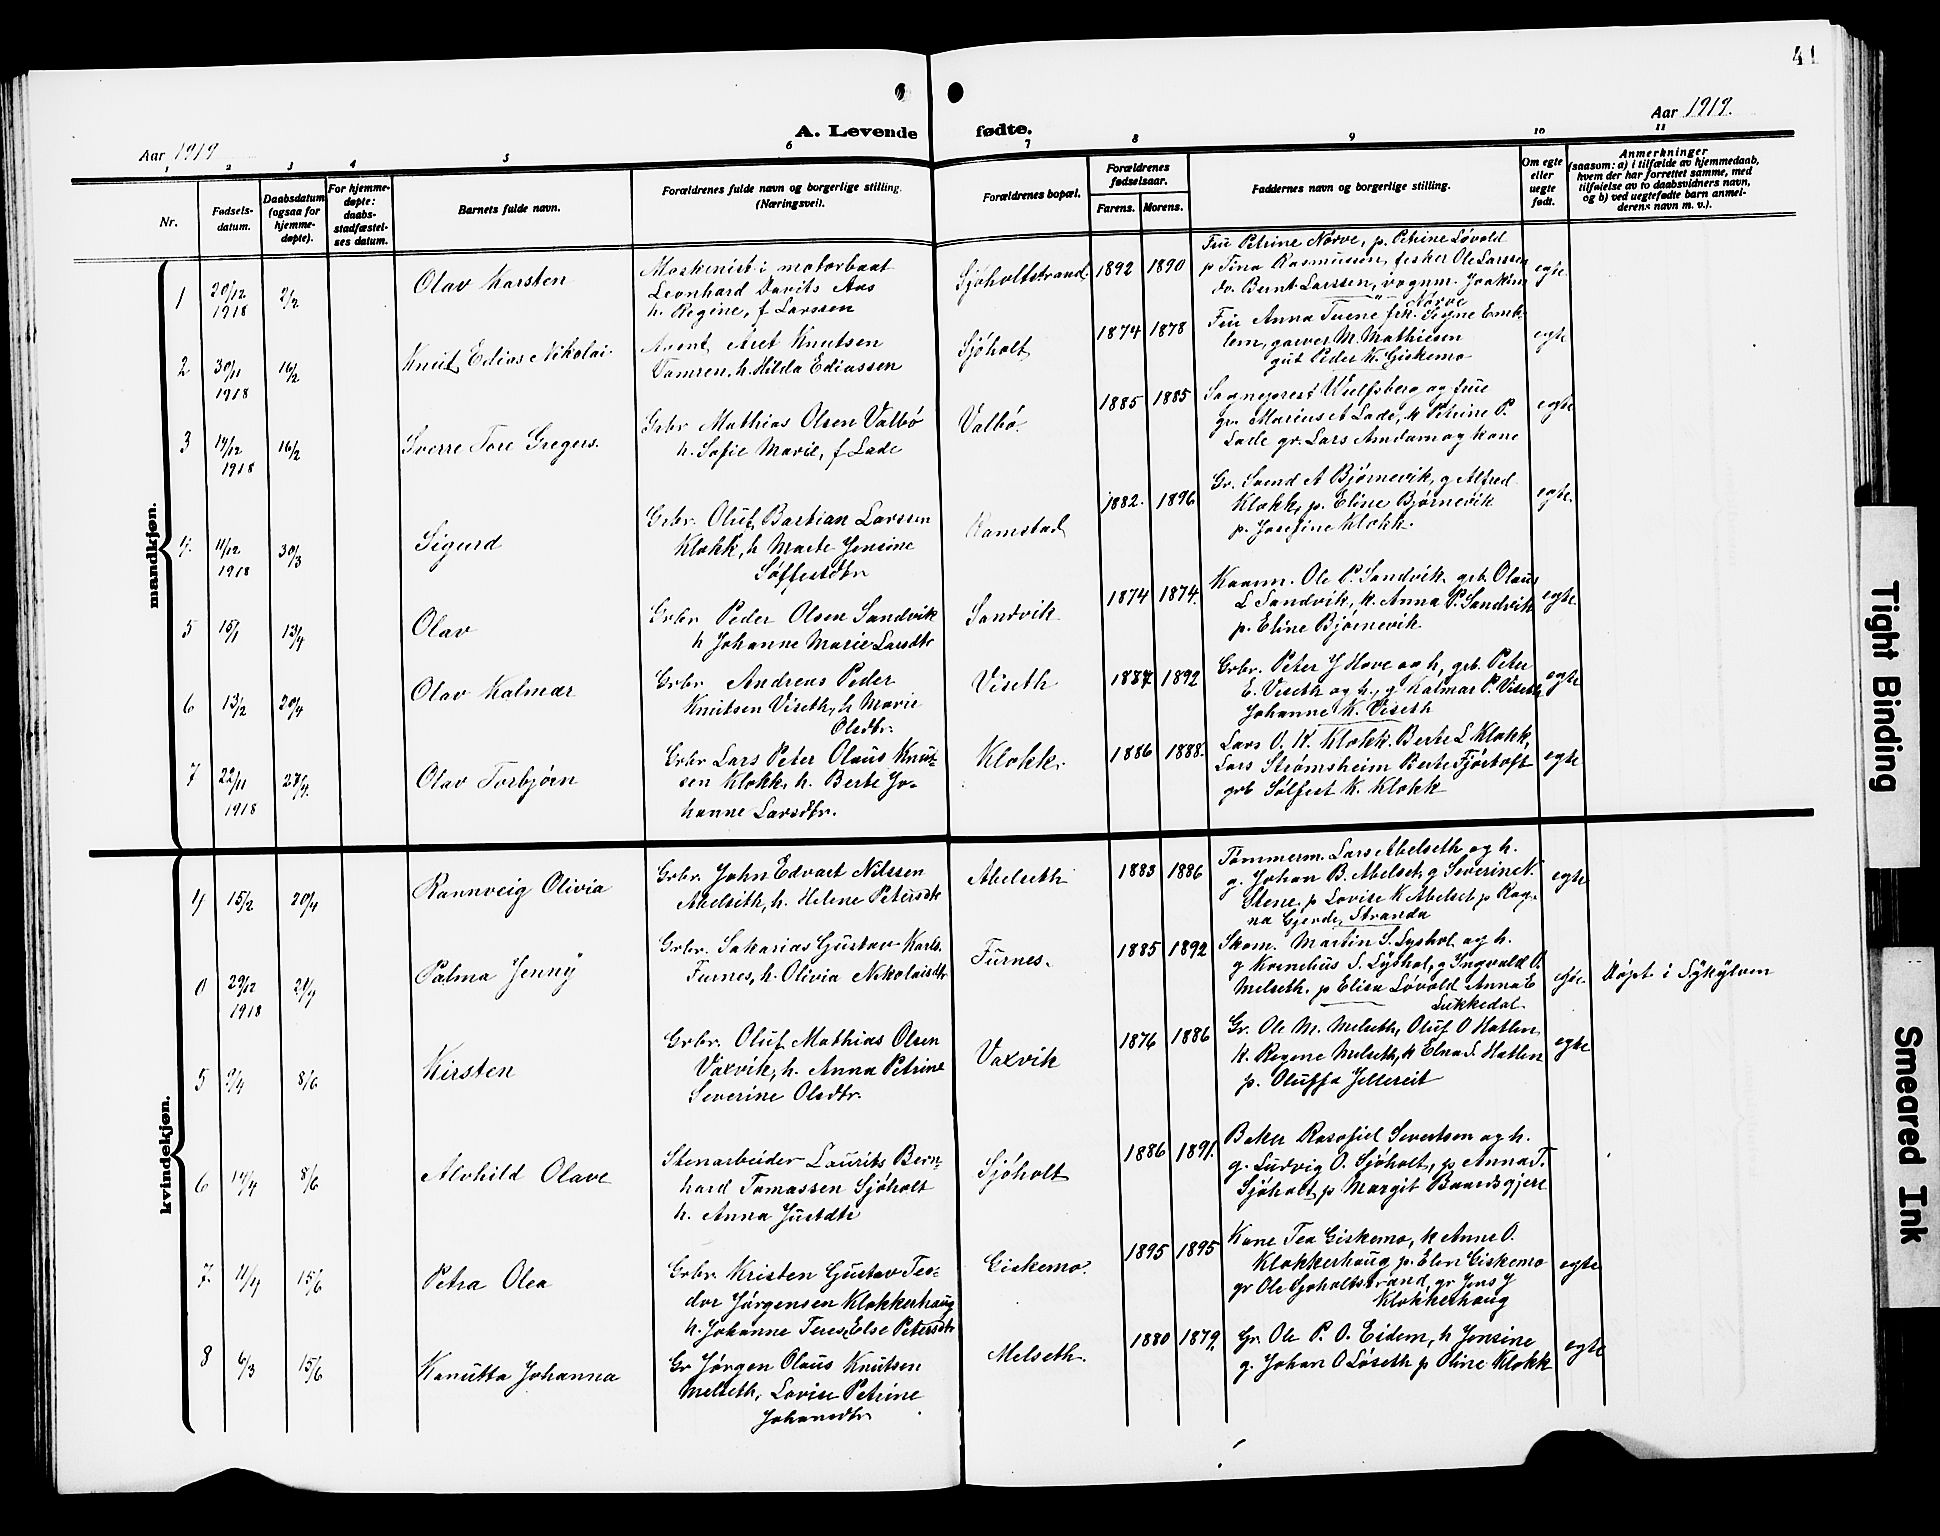 41
A. Levende fødte.
Aar 1919
Aar 1919.
1 2 3 4 5 6 7 8 9 10 11
Nr.
Fødsels-
datum.
Daabsdatum
(ogsaa for
hjemme-
døpte).
For hjemme-
døpte:
daabs-
stadfæstel-
ses datum.
Barnets fulde navn.
Forældrenes fulde navn og borgerlige stilling.
(Næringsvei).
Forældrenes bopæl.
Forældrenes
fødselsaar.
Farens. Morens.
Faddernes navn og borgerlige stilling.
Om egte
eller
uegte
født.
Anmerkninger
(saasom: a) i tilfælde av hjemmedaab,
hvem der har forrettet samme, med
tilføielse av to daabsvidners navn,
og b) ved uegtefødte barn anmel-
derens navn m. v.).
mandkjøn.
1 20/12 1918 2/2 Olav Karsten
Maskinist i motorbaat
Leonhard Davits Aas
h. Regine, f Larssen
Sjöholtstrand 1892 1890
Fru Petrine Nörve, p. Petrine Lövold
p Tina Rasmussen, fisker Ole Larssen
do. Bernt Larssen, vognm. Joakim
Nörve
egte
2 30/11 1918 16/2 Knut Edias Nikolai.
Agent Aret Knutsen
Vamren, h. Hilda Ediassen
Sjöholt 1874 1878
Fru Anna Tuene frk. Signe Emb-
lem, garver M. Mathiesen
gut Peder K. Giskemo
egte
3 17/12 1918 16/2 Sverre Tore Gregers.
Grbr Mathias Olsen Valbö
h. Sofie Marie, f Lade
Valbö. 1885 1885
Sogneprest Wulfsberg og frue
gr. Marius A Lade, k Petrine P.
Lade gr. Lars Amdam og kone
egte
4. 11/12 1918 30/3 Sigurd
Grbr. Oluf Bastian Larssen
Klokk, h Marte Jensine
Sölfestdtr
Ramstad 1882. 1896
Gr. Svend A Björnevik, g Alfred
Klokk, p. Eline Björnevik
p. Josefine Klokk.
egte
5 15/1 13/4 Olav
Grbr Peder Olsen Sandvik
h Johanne Marie Larsdtr
Sandvik 1874 1874.
Kaarm. Ole P. Sandvik. grb. Olaus
L Sandvik, k. Anna P. Sandvik
p. Eline Björnevik
egte
6 13/2 20/4 Olav Kalmar
Grbr Andreas Peder
Knutsen Viseth, h Marie
Olsdtr.
Viseth 1887 1892
Grbr. Peter J Hove og h, grb. Peter
E. Viseth og h., g. Kalmar P. Viseth
Johanne K. Viseth
egte
7 22/11 1918 27/4. Olav Torbjörn
Grbr Lars Peter Olaus Knut-
sen Klokk, h. Berte Jo-
hanne Larsdtr.
Klokk. 1886 1888.
Lars O. K. Klokk. Berte L Klokk,
Lars Strömsheim Berte Fjörtoft
grb Sölfest K. Klokk
egte
kvindekjøn.
4 15/2 20/4 Rannveig Olivia
Grbr. John Edvart Nilssen
Abelseth, h. Helene Petersdtr
Abelseth 1883 1886
Tömmerm. Lars Abelseth og h.
g. Johan B. Abelset, g Severine N.
Stene, p Lovise K Abelset p Rag-
na Gjerde, Stranda
egte
0 29/12 1918 21/4 Palma Jenny
Grbr. Sakarias Gustav Karls.
Furnes, h. Olivia Nikolaisdtr
Furnes. 1885 1892
Skom. Martin S. Lyshol og h.
g Kornelius S. Lyshol, g Ingvald O.
Melseth. p Elisa Lövold Anna E
Lukkedal
egte. Döpt i Sykylven
5 9/4 8/6 Kirsten
Grbr. Oluf Mathias Olsen
Vaxvik, h. Anna Petrine
Severine Olsdtr.
Vaxvik 1876 1886
Gr. Ole M. Melseth, Oluf O Hatlen
k. Regine Melseth, k Elna S. Hatlen
p. Oluffa Jellereit
egte
6 14/4 8/6 Alvhild Olave
Stenarbeider Laurits Bern-
hard Tomassen Sjöholt
h. Anna Justdtr
Sjöholt 1886 1891.
Baker Rasofiel Severtsen og h.
g. Ludvig O. Sjöholt, p Anna T.
Sjöholt p Margit Baardsgjere
7. 11/4 15/6 Petra Olea
Grbr. Kristen Gustav Teo-
dor Jörgensen Klokkerhaug
h. Johanne Teres. Else Petersdtr
Giskemo. 1895 1895
Kone Tea Giskemo, k Anne O.
Klokkerhaug, p. Elen Giskemo
gr Ole Sjöholtstrand, gr Jens J
Klokkerhaug
egte
8 6/3 15/6 Kanutta Johanna
Gr Jörgen Olaus Knutsen
Melseth, Lovise Petrine
Johansdtr
Melseth. 1880 1879.
Gr. Ole P. O. Eidem, h Jensine
g. Johan O Löseth p Oline Klokk
egte
Tight Binding
Smeared Ink